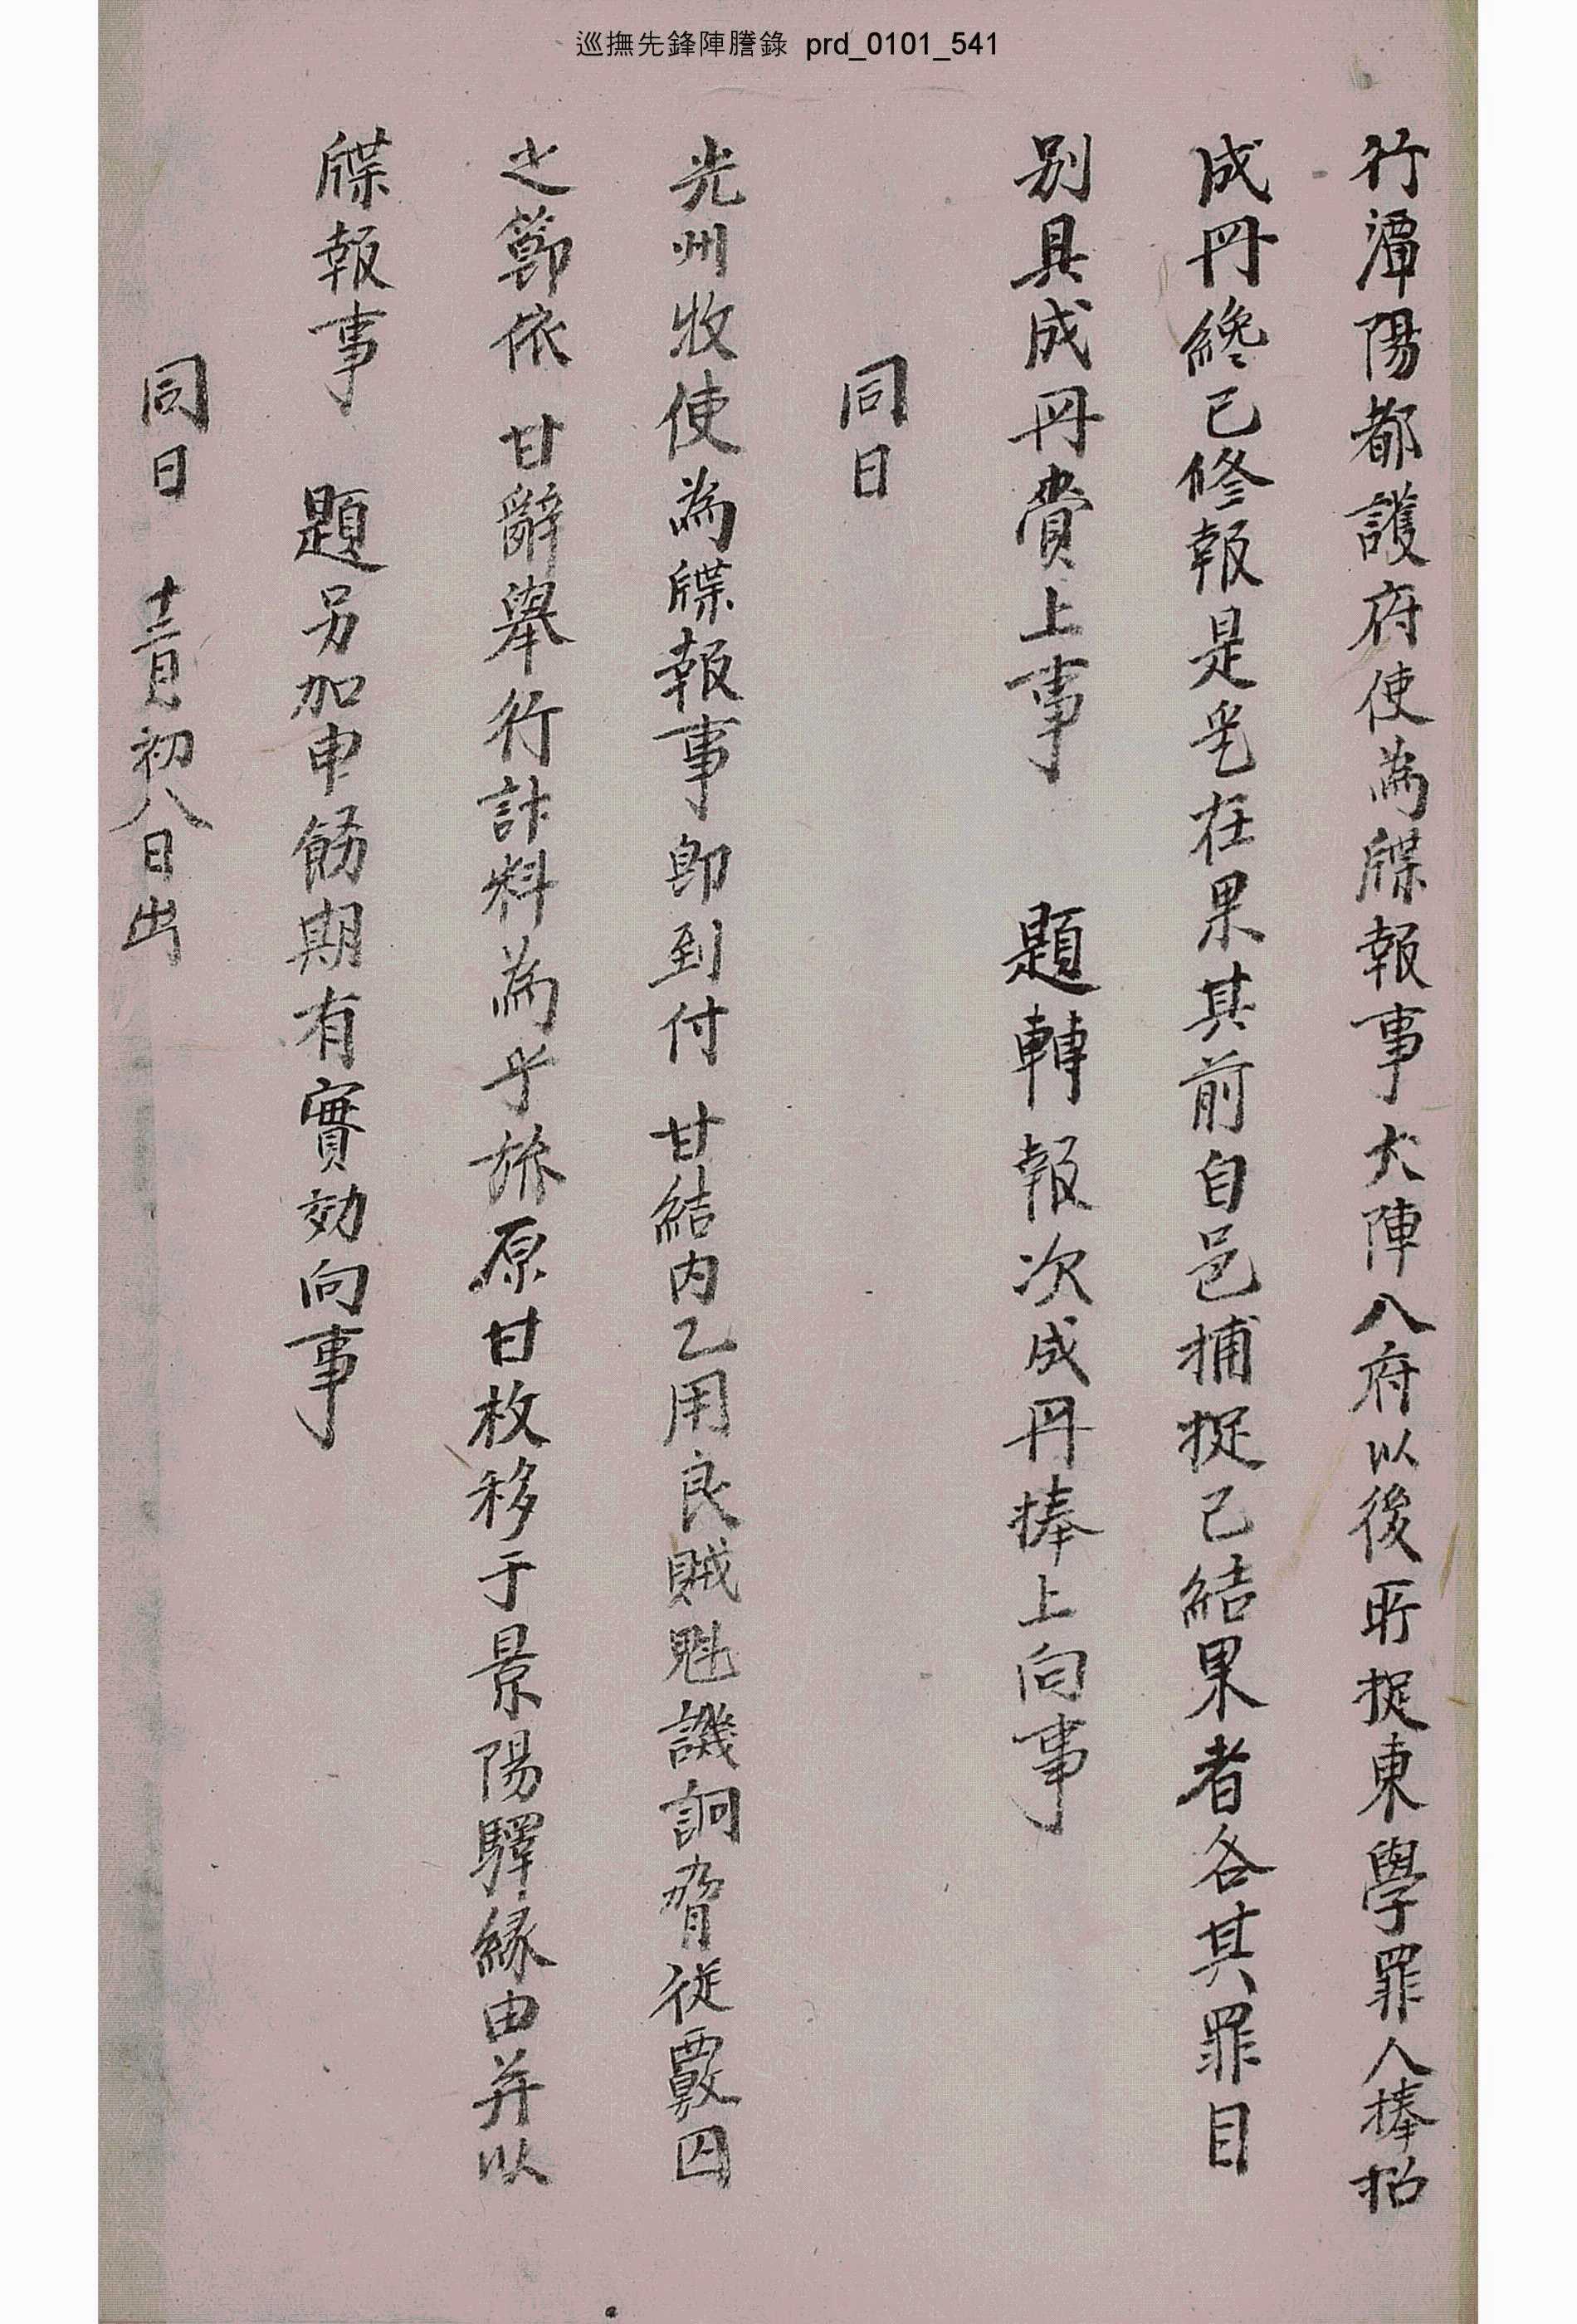 巡撫先鋒陣謄錄 prd_0101_541
行潭陽都護府使為牒報事大陣入府以後所捉東學罪人捧招
成冊纔已修報是乎在果其前自邑捕捉已結果者各其罪目
別具成冊賫上事 題轉報次成冊捧上向事
同日
光州牧使為牒報事即到付 甘結內乙用良賊魁譏詗脅從覈囚
之節依 甘辭舉行計料為乎旀原甘枚移于景陽驛緣由并以
牒報事 題另加申飭期有實効向事
同日 十二月初八日出